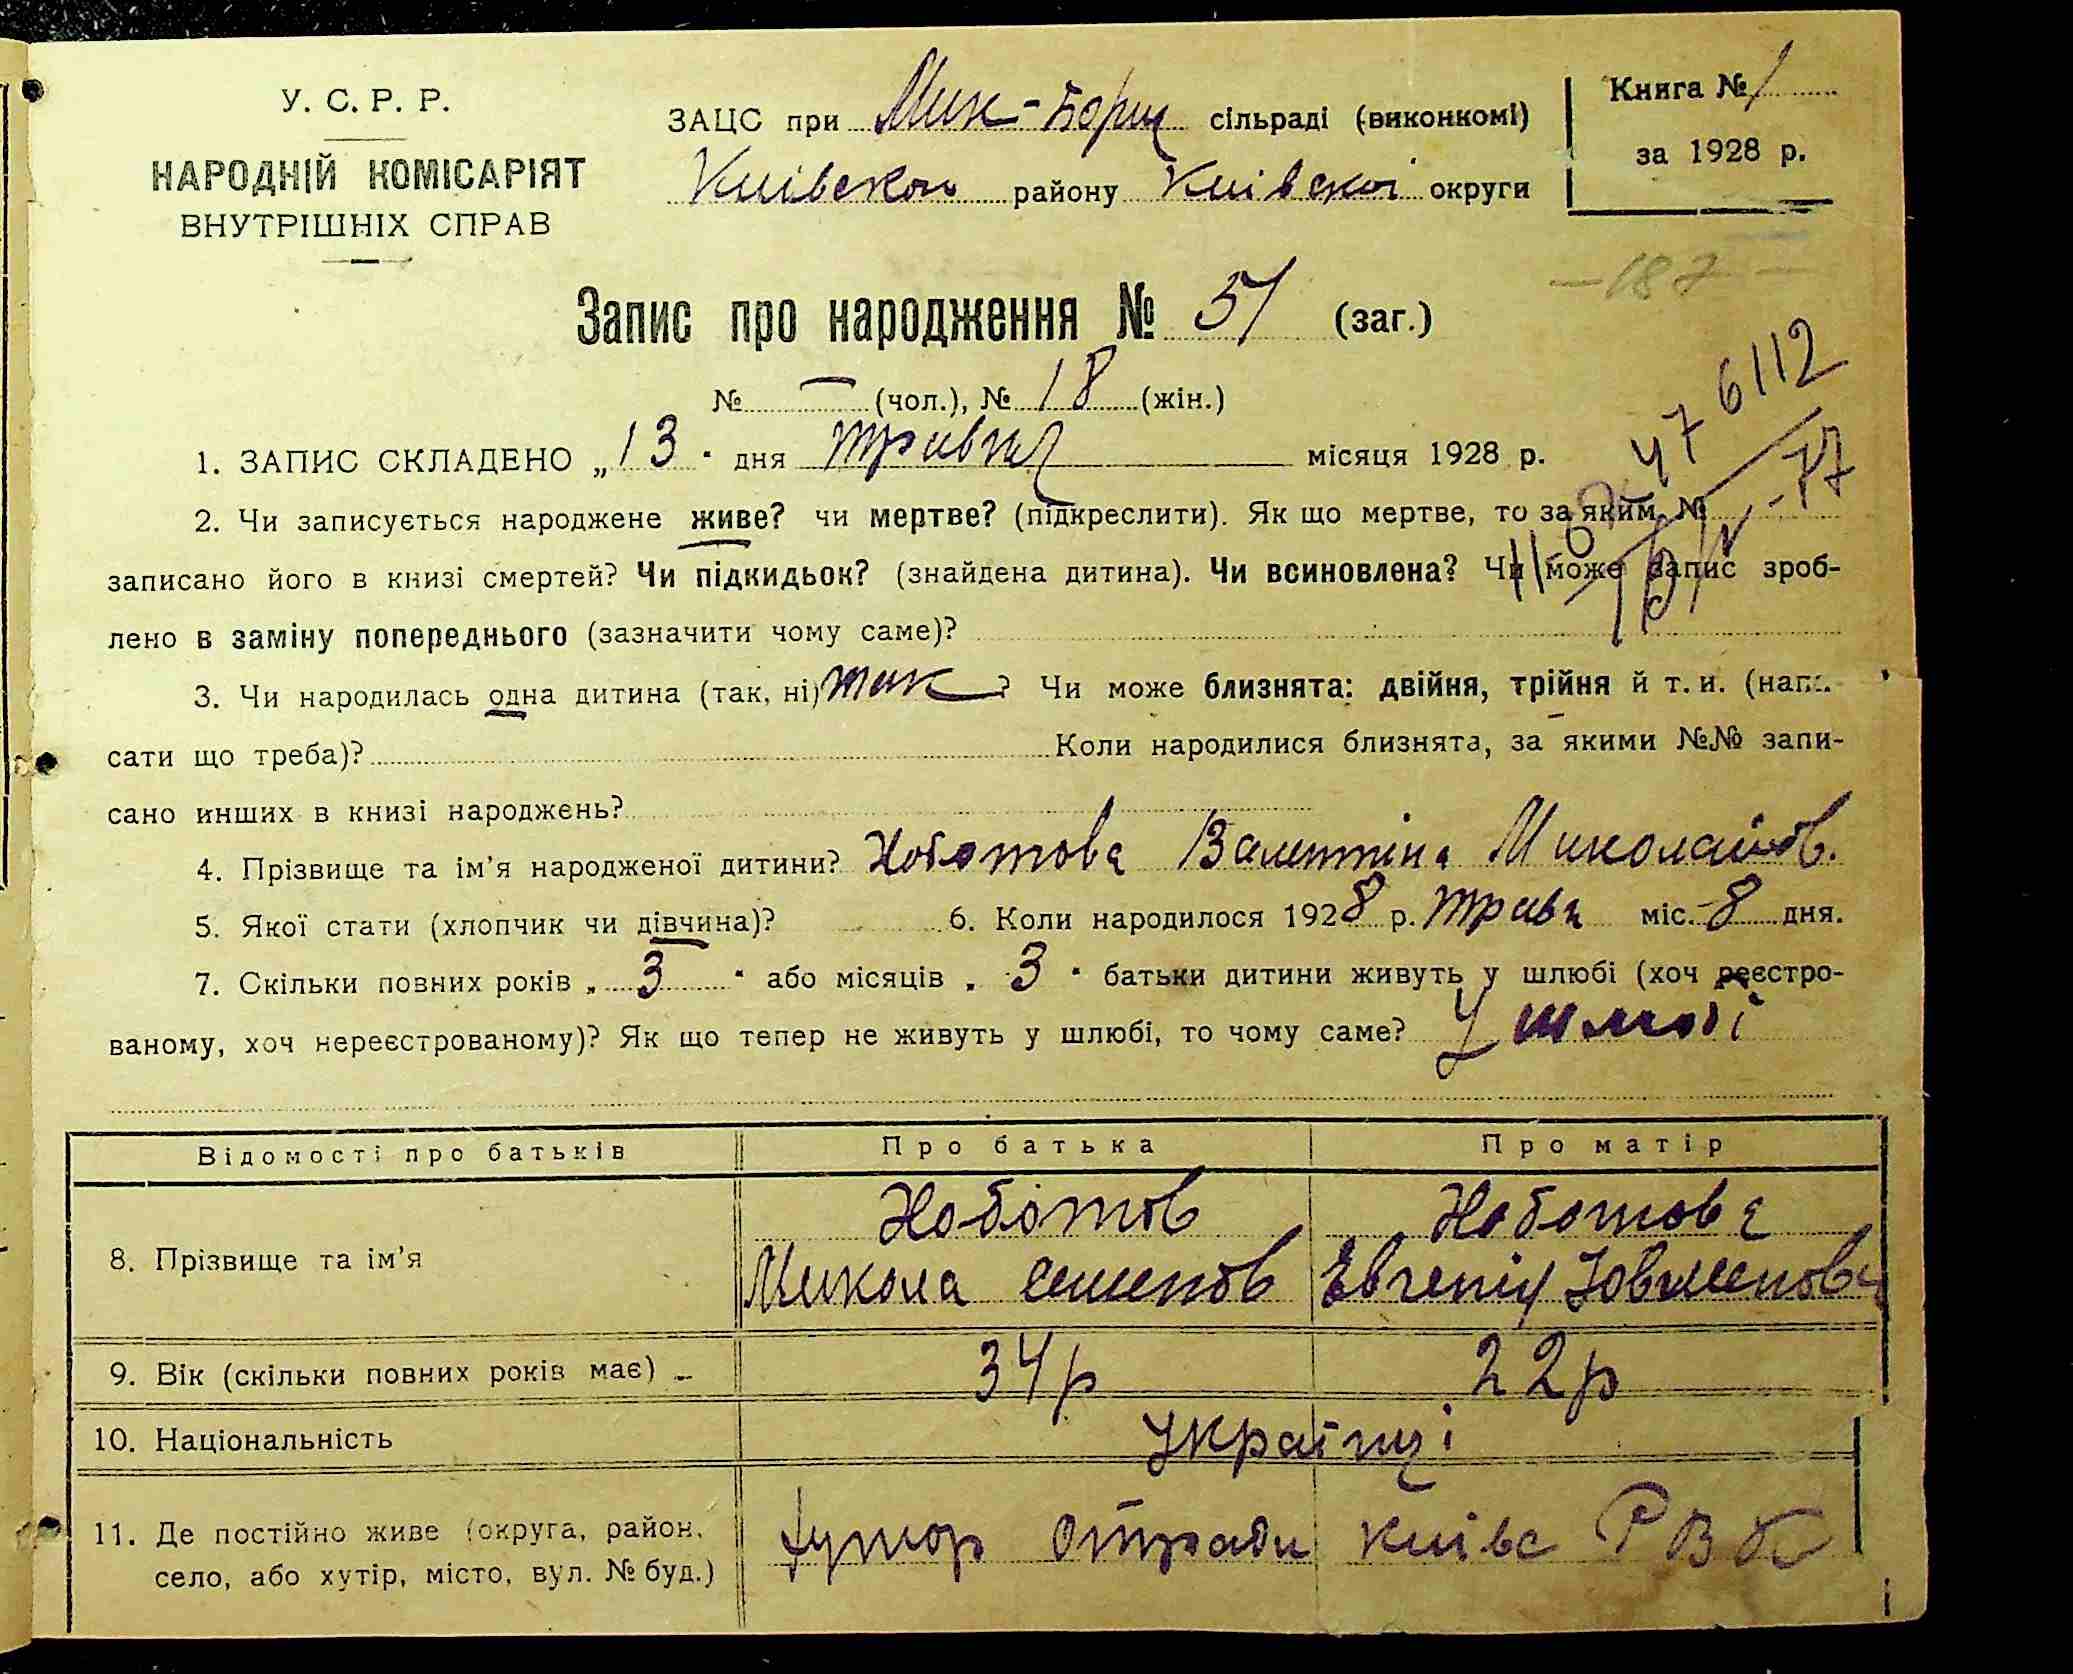 У. С. Р. Р.
НАРОДНІЙ КОМІСАРІЯТ
ВНУТРІШНІХ СПРАВ
ЗАЦС при Мик-Борщ сільраді (виконкомі)
Київскої району Київскої округи
Книга № 1
за 1928 р.
-187-
Запис про народження № 51 (заг.)
№ — (чол.), № 18 (жін.)
1. ЗАПИС СКЛАДЕНО „13" дня травня місяця 1928 р.
2. Чи записується народжене живе? чи мертве? (підкреслити). Як що мертве, то за яким №
записано його в книзі смертей? Чи підкидьок? (знайдена дитина). Чи всиновлена? Чи може запис зроб-
лено в заміну попереднього (зазначити чому саме)?
3. Чи народилась одна дитина (так, ні) так? Чи може близнята: двійня, трійня й т. и. (напи-
сати що треба)? Коли народилися близнята, за якими №№ запи-
сано инших в книзі народжень?
4. Прізвище та ім'я народженої дитини? Хоботова Валентіна Миколаїов.
5. Якої стати (хлопчик чи дівчина)? 6. Коли народилося 1928 р. трав міс. 8 дня.
7. Скільки повних років „3" або місяців „3" батьки дитини живуть у шлюбі (хоч реєстро-
ваному, хоч нереєстрованому)? Як що тепер не живуть у шлюбі, то чому саме? У шлюбі
Відомості про батьків Про батька Про матір
8. Прізвище та ім'я
Хоботов Хоботова
Микола семенов Евгенія Ювменова
9. Вік (скільки повних років має) 34р 22р
10. Національність Українці
11. Де постійно живе (округа, район,
село, або хутір, місто, вул. № буд.)
хутор Отради Київс Р В К